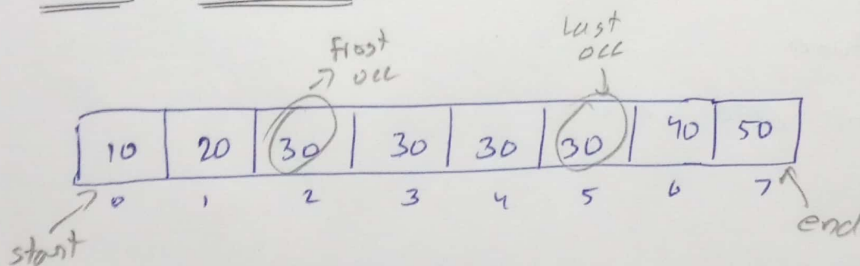 first
occ
Last
occ
10 20 30 30 30 30 40 50
0 1 2 3 4 5 6 7
start
end